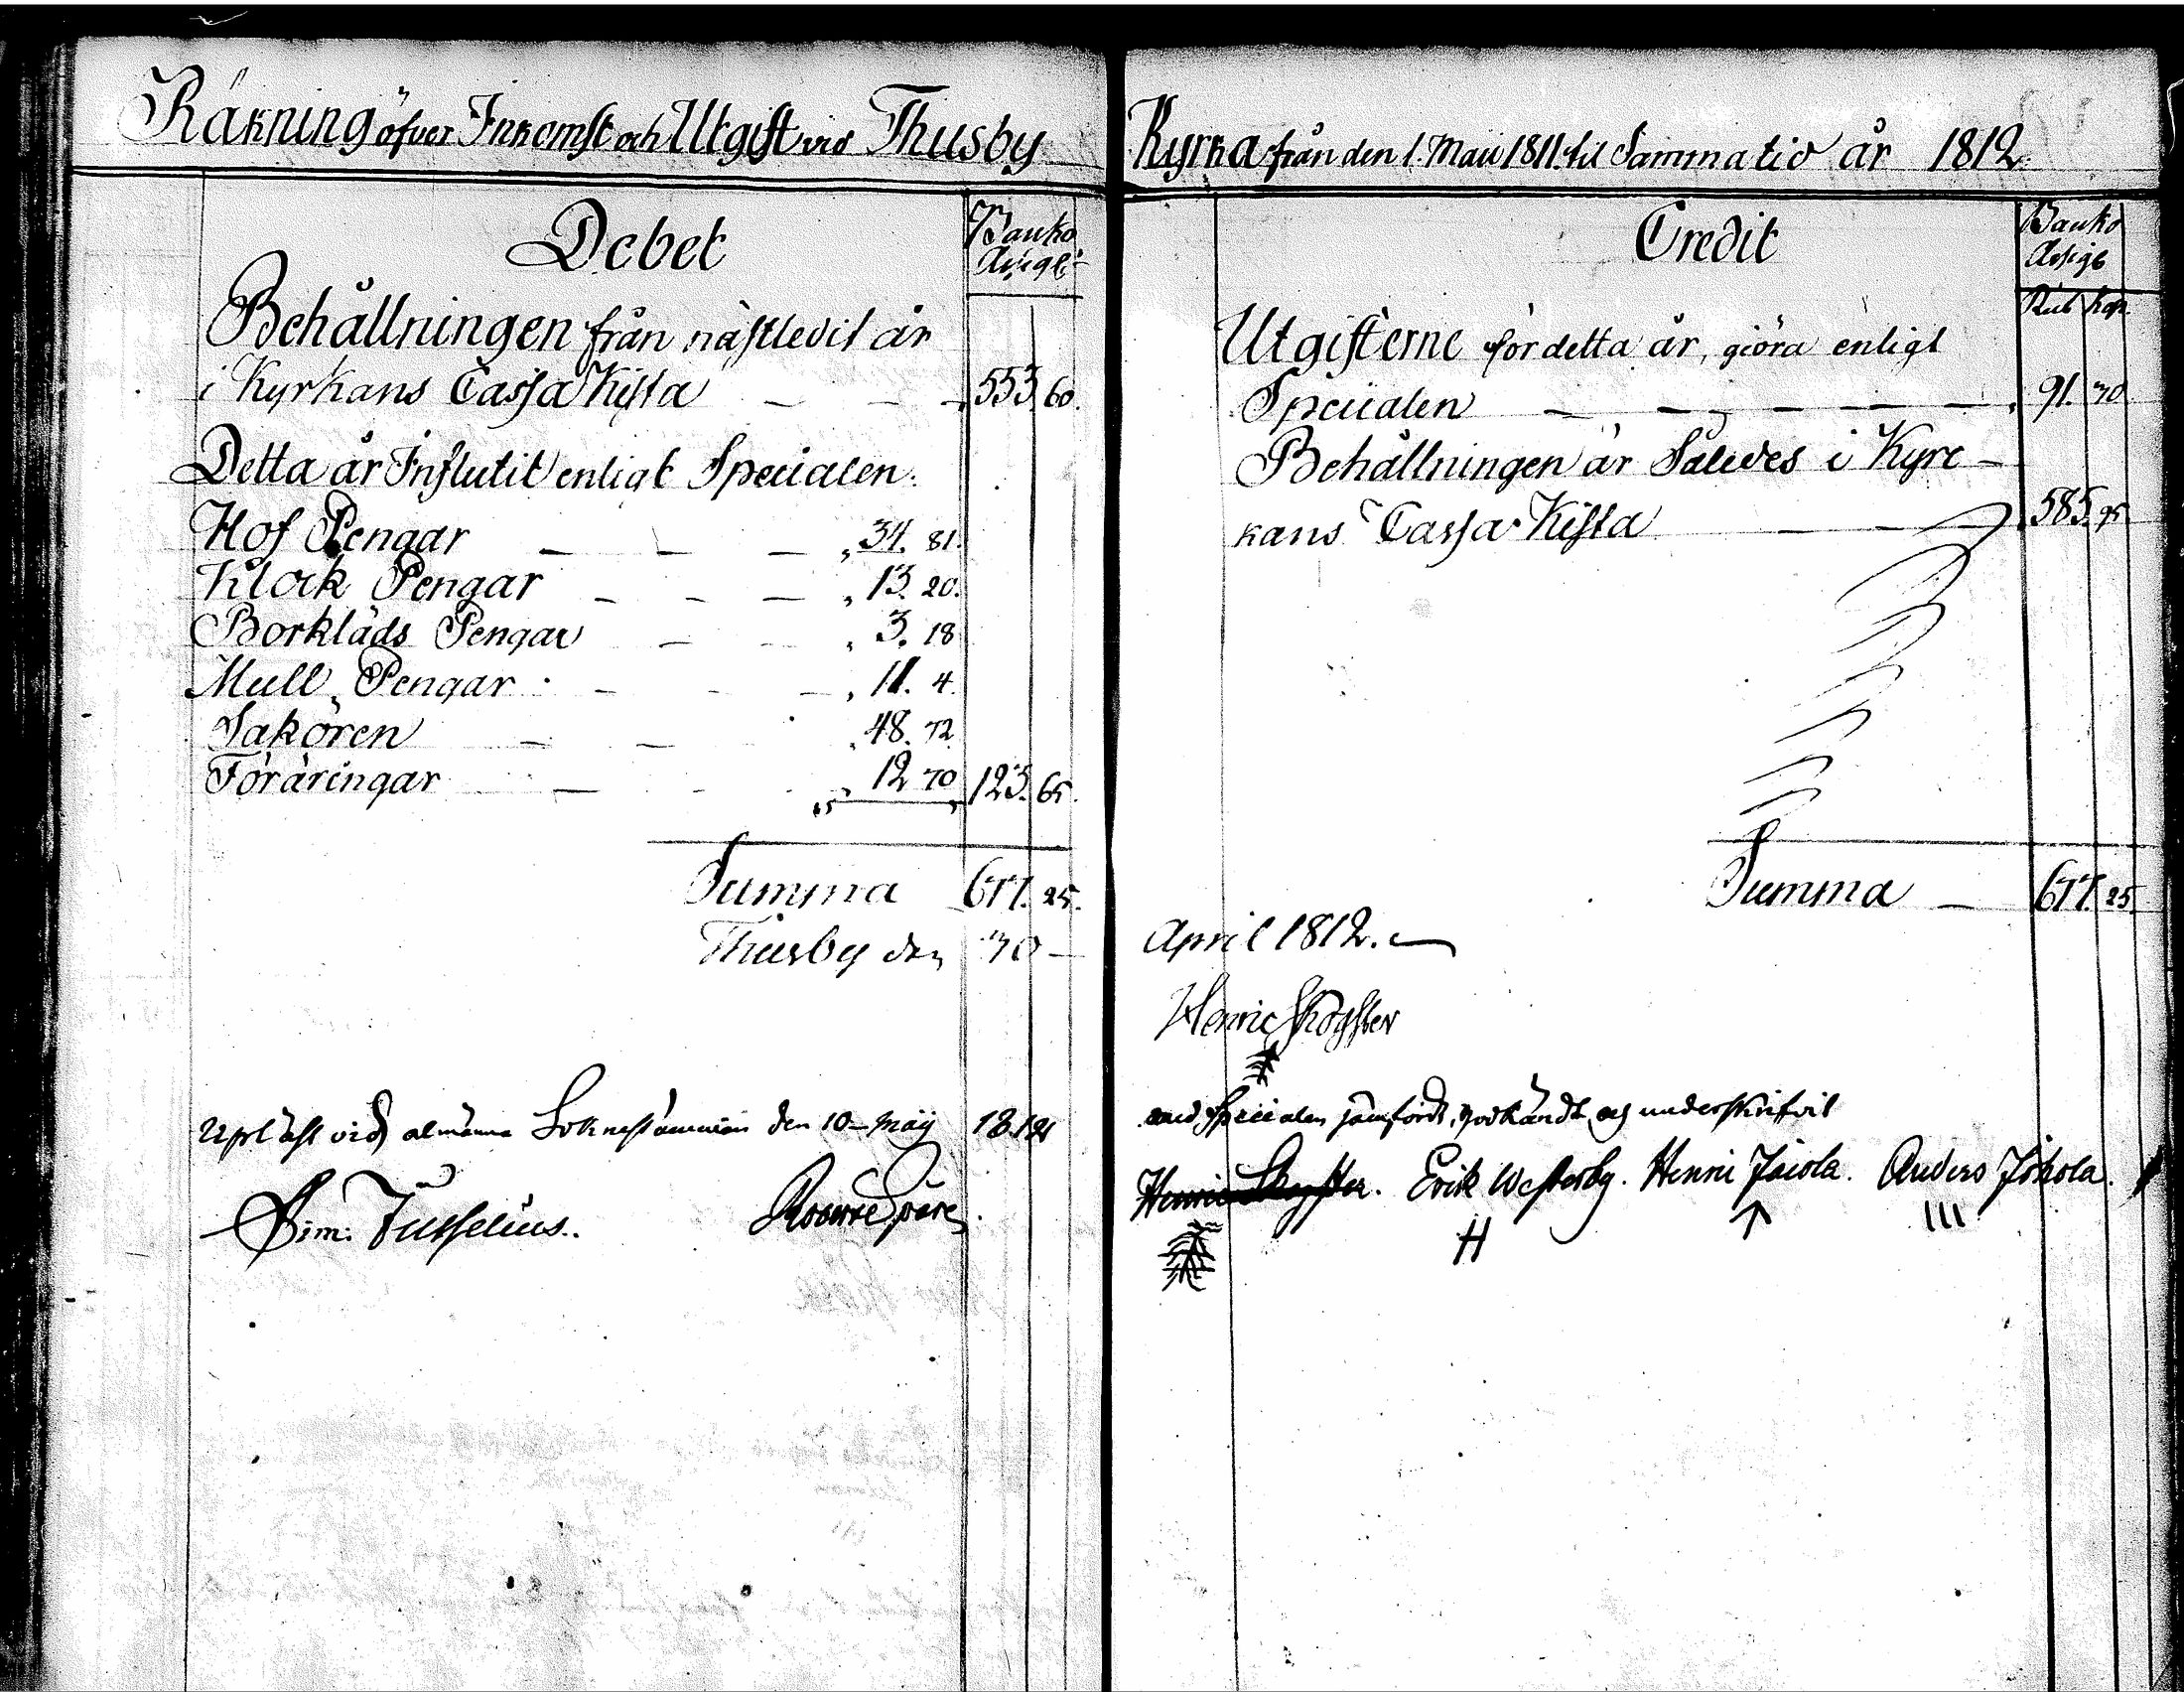 Räkning öfver Inkomst och Utgift vid Thusby
Debet
Banko
Assigb
Behållningen från nästledit år
i Kyrkans Cassa Kista — — — 553. 60.
Detta år Influtit enligt Specialen.
Hof Pengar — — — „ 34. 81.
Klock Pengar — — — „ 13. 20.
Borkläds Pengar — — „ 3. 18
Mull Pengar — — — „ 11. 4.
Saköron — — „ 48. 72
Föräringar — „ 12 70 123. 65.
Summa 677. 25.
Thusby den 30 —
Upläst vid almänna Soknestämman den 10 — Maij 1812
Sim: Jusselius.
Kyrka från den 1. Maii 1811. til Samma tid år 1812.
Credit
Banko
Assigb
Rub kop.
Utgifterne för detta år, giöra enligt
Specialen — — — — — 91. 30
Behållningen är Således i Kyrc-
kans Cassa Kista — — — 585. 95
Summa — 677. 25.
April 1812. —
Henric Skogster
med Specialen jämförd, godkändt och underskrifvit
Henric Skogster. Erik Westerby. Henric Jäiola. Anders Jokola.
H III